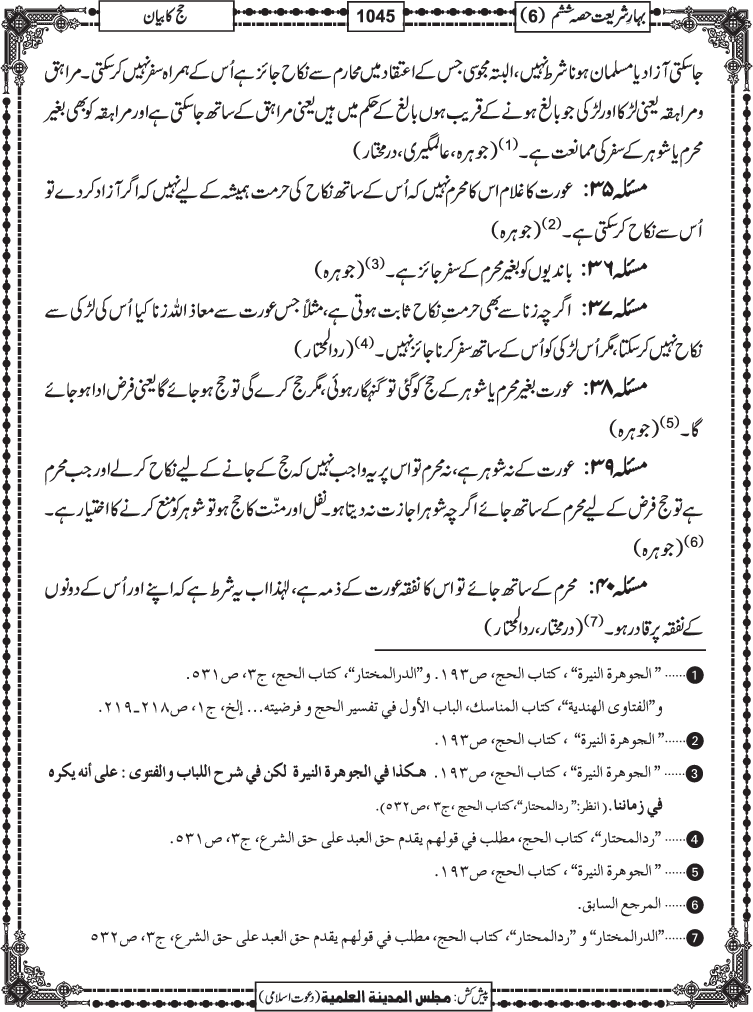 بہارِ شریعت حصہ ششم (6)
1045
حج کا بیان
جاسکتی آزاد یا مسلمان ہونا شرط نہیں، البتہ مجوسی جس کے اعتقاد میں محارم سے نکاح جائز ہے اُس کے ہمراہ سفر نہیں کرسکتی۔ مراہق
ومراہقہ یعنی لڑکا اور لڑکی جو بالغ ہونے کے قریب ہوں بالغ کے حکم میں ہیں یعنی مراہق کے ساتھ جاسکتی ہے اور مراہقہ کو بھی بغیر
محرم یا شوہر کے سفر کی ممانعت ہے۔(1) (جوہرہ، عالمگیری، درمختار)
مسئلہ ۳۵: عورت کا غلام اس کا محرم نہیں کہ اُس کے ساتھ نکاح کی حرمت ہمیشہ کے لیے نہیں کہ اگر آزاد کردے تو
اُس سے نکاح کرسکتی ہے۔(2) (جوہرہ)
مسئلہ ۳۶: باندیوں کو بغیر محرم کے سفر جائز ہے۔(3) (جوہرہ)
مسئلہ ۳۷: اگرچہ زنا سے بھی حرمتِ نکاح ثابت ہوتی ہے، مثلاً جس عورت سے معاذ اللہ زنا کیا اُس کی لڑکی سے
نکاح نہیں کرسکتا، مگر اُس لڑکی کو اُس کے ساتھ سفر کرنا جائز نہیں۔(4) (ردالمحتار)
مسئلہ ۳۸: عورت بغیر محرم یا شوہر کے حج کو گئی تو گنہگار ہوئی، مگر حج کرے گی تو حج ہو جائے گا یعنی فرض ادا ہو جائے
گا۔(5) (جوہرہ)
مسئلہ ۳۹: عورت کے نہ شوہر ہے، نہ محرم تو اس پر یہ واجب نہیں کہ حج کے جانے کے لیے نکاح کرلے اور جب محرم
ہے تو حج فرض کے لیے محرم کے ساتھ جائے اگرچہ شوہر اجازت نہ دیتا ہو۔ نفل اور منّت کا حج ہو تو شوہر کو منع کرنے کا اختیار ہے۔
(6) (جوہرہ)
مسئلہ ۴۰: محرم کے ساتھ جائے تو اس کا نفقہ عورت کے ذمہ ہے، لہٰذا اب یہ شرط ہے کہ اپنے اور اُس کے دونوں
کے نفقہ پر قادر ہو۔(7) (درمختار، ردالمحتار)
1 ...... ”الجوهرة النيرة“ ، كتاب الحج، ص١٩٣. و”الدرالمختار“، كتاب الحج، ج٣، ص٥٣١.
و”الفتاوى الهندية“، كتاب المناسك، الباب الأول في تفسير الحج و فرضيته... إلخ، ج١، ص٢١٨ـ٢١٩.
2 ......”الجوهرة النيرة“ ، كتاب الحج، ص١٩٣.
3 ...... ”الجوهرة النيرة“ ، كتاب الحج، ص١٩٣. هـكذا في الجوهرة النيرة لكن في شرح اللباب والفتوى : على أنه يكره
في زماننا. (انظر:”ردالمحتار“،كتاب الحج ،ج٣ ،ص٥٣٢).
4 ...... ”ردالمحتار“، كتاب الحج، مطلب في قولهم يقدم حق العبد على حق الشرع، ج٣، ص٥٣١.
5 ...... ”الجوهرة النيرة“ ، كتاب الحج، ص١٩٣.
6 ...... المرجع السابق.
7 ......”الدرالمختار“ و ”ردالمحتار“، كتاب الحج، مطلب في قولهم يقدم حق العبد على حق الشرع، ج٣، ص٥٣٢
پیش کش: مجلس المدینة العلمیة (دعوت اسلامی)